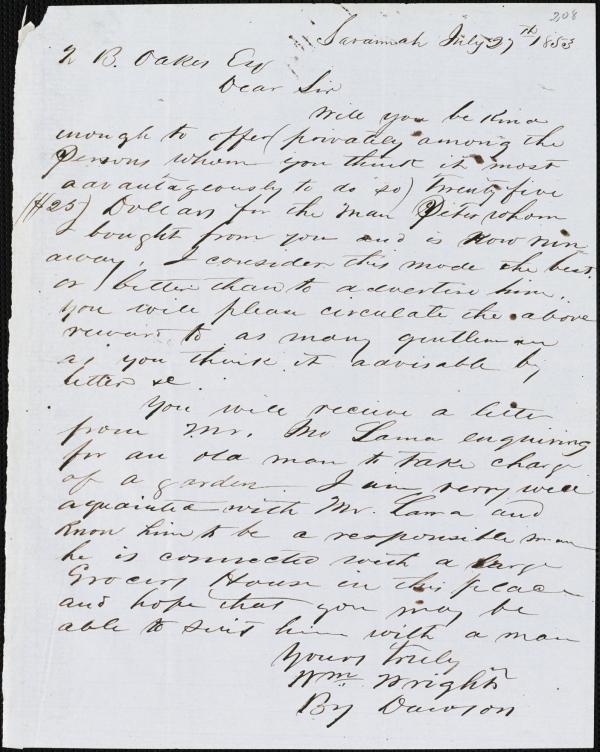 208
Savannah July 27th 1853
Z B. Oakes Esq
Dear Sir
Will you be kind
enough to offer (privately among the
Persons whom you think it most
advantageously to do so) twenty five
($25) Dollars for the man Peter whom
I bought from you and is now run
away, I consider this mode the best
or better than to advertise him,
you will please circulate the above
reward to as many gentlemen
as you think it advisable by
letter &c
You will receive a letter
from Mr. Lama enquiring
for an old man to take charge
of a garden. I am very well
aquainted with Mr. Lama and
know him to be a responsible man
he is connected with a large
Grocery House in this place
and hope that you may be
able to suit him with a man
Yours truly
Wm Wright
By Dawson